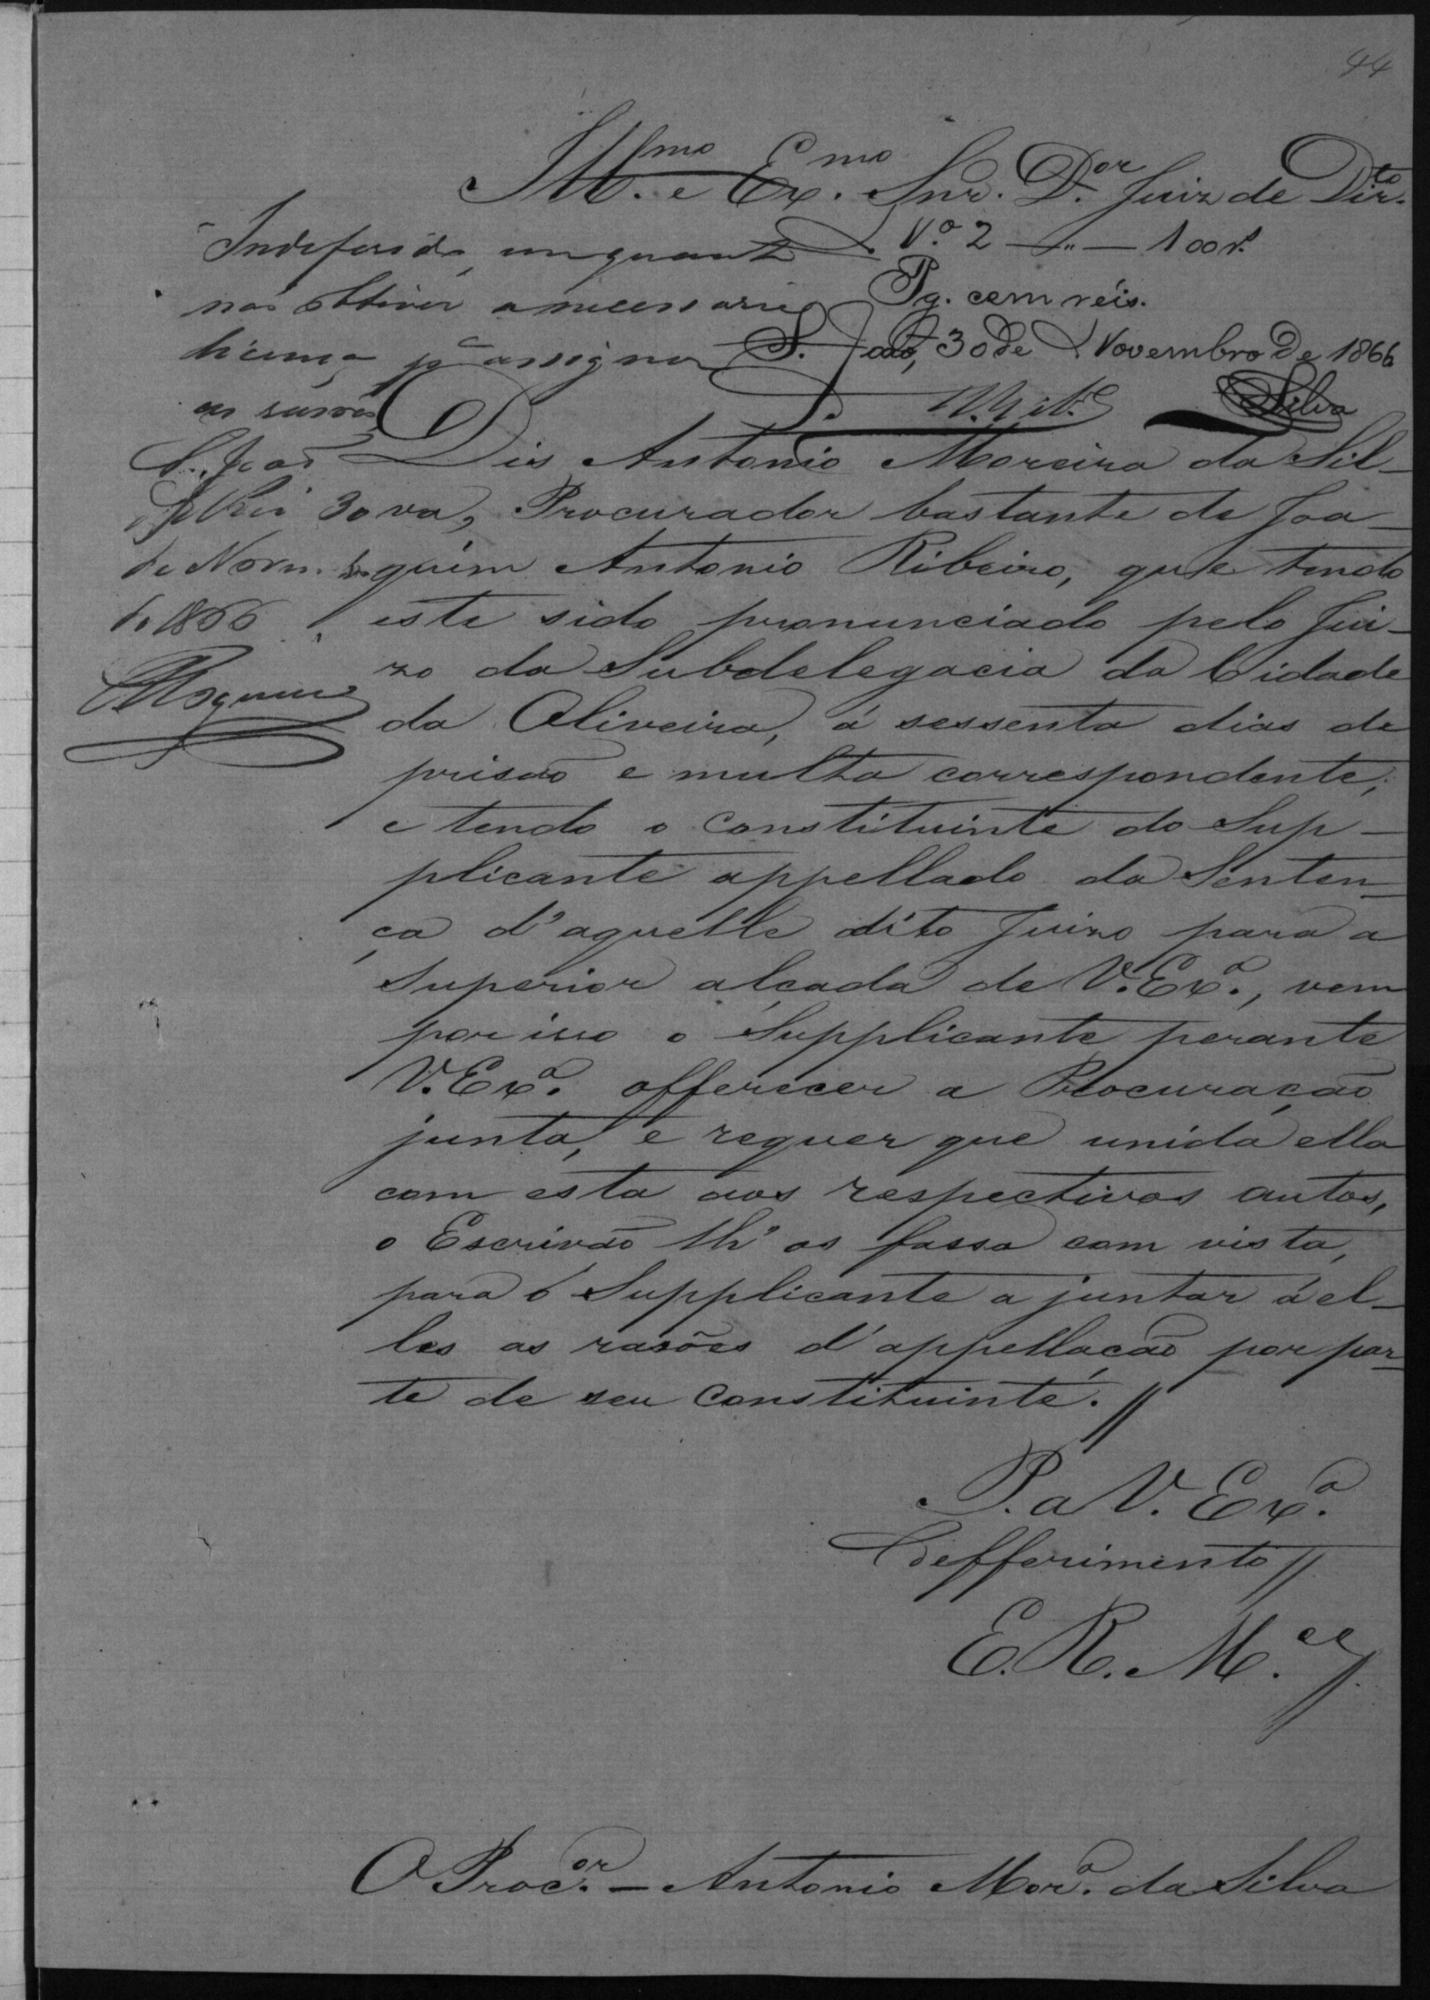 44
Ill.mo e Ex.mo Snr. D.or Juiz de Dir.to
N.o 2 — " — 100 r.s
Pg. cem réis.
S. João, 30 de Novembro de 1866
Silva
Indeferido, emquanto
não obtiver a necessaria
licença p.a assignar
as rasões
S. João
d'El Rei 30
de Novem.bro
de 1866
Diz Antonio Moreira da Sil-
va, Procurador bastante de Joa-
quim Antonio Ribeiro, que tendo
este sido pronunciado pelo Jui-
zo da Subdelegacia da Cidade
da Oliveira, á sessenta dias de
prisão e multa correspondente,
e tendo o constituinte do Sup-
plicante appellado da Senten-
ça d'aquelle dito Juizo para a
Superior alçada de V. Ex.a, vem
por isso o Supplicante perante
V. Ex.a offerecer a Procuração
junta, e requer que unida ella
com esta aos respectivos autos,
o Escrivão lh'os fassa com vista,
para o Supplicante ajuntar á el-
les as rasões d'appellação por par-
te de seu constituinte. //
P. a V. Ex.a
defferimento //
E. R. M.ce
O Proc.or — Antonio Mor.a da Silva